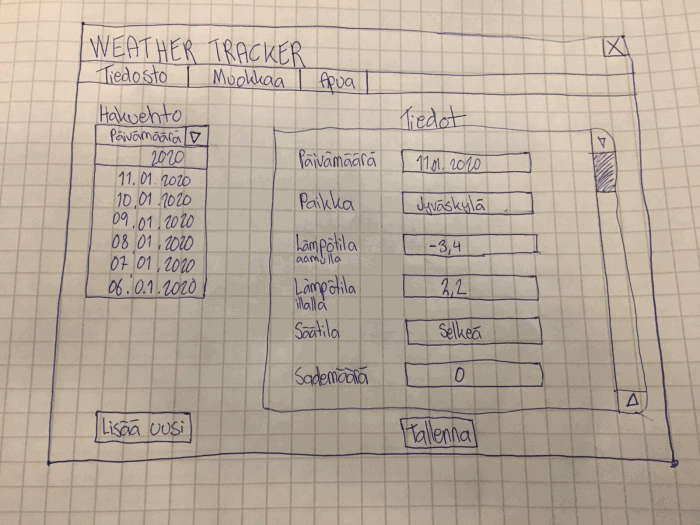 WEATHER TRACKER X
Tiedosto Muokkaa Apua
Hakuehto
Päivämäärä
2020
11.01.2020
10.01.2020
09.01.2020
08.01.2020
07.01.2020
06.0.1.2020
Lisää uusi
Tiedot
Päivämäärä 11.01.2020
Paikka Jyväskylä
Lämpötila
aamulla
-3,4
Lämpötila
illalla
2,2
Säätila Selkeä
Sademäärä 0
Tallenna